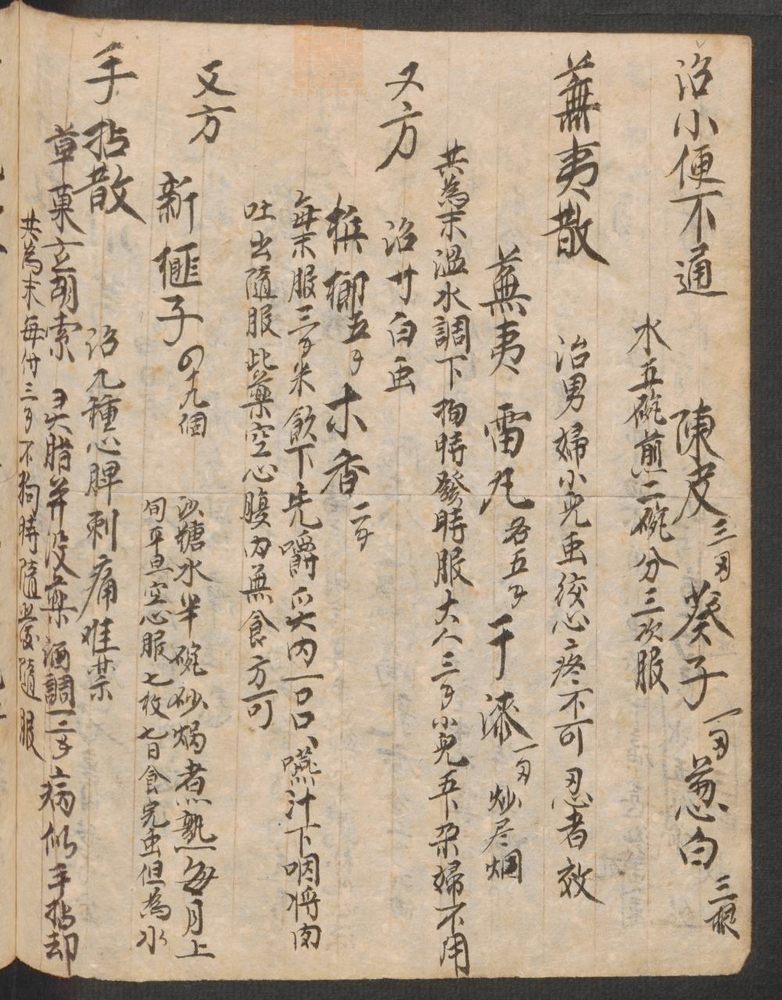 治小便不通
陳皮三刄葵子一刄葱白三根
水五碗煎二碗分三次服
蕪夷散
治男婦小児虫絞心疼不可忍者效
蕪夷雷丸各五子干漆一刄炒尽烟
共為末温水調下拘時發時服大人三子小児五下孕婦不用
又方
治寸白虫
梹榔五子木香二子
每末服三子米飲下先嚼炙肉一口嚥汁下咽将肉
吐出隨服此藥空心腹内無食方可
又方
新榧子四十九個
沙糖水半碗砂煱煮熟每月上
旬平旦空心服七枚七日食完虫但為水
手拈散
治九種心脾刺痛难禁
草菓玄胡索灵脂并没藥酒調一二子病似手拈却
共為末每付三子不拘時隨發隨服